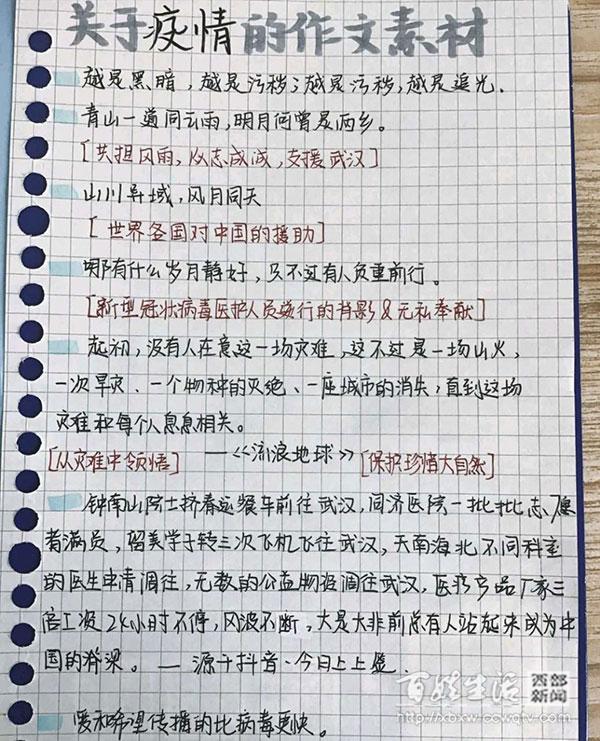 关于疫情的作文素材
越是黑暗，越是污秽；越是污秽，越是追光.
青山一道同云雨，明月何曾是两乡。
[共担风雨，众志成城，支援武汉]
山川异域，风月同天
[世界各国对中国的援助]
哪有什么岁月静好，只不过有人负重前行。
[新型冠状病毒医护人员逆行的背影&无私奉献]
起初，没有人在意这一场灾难，这不过是一场山火，
一次旱灾、一个物种的灭绝、一座城市的消失，直到这场
灾难和每个人息息相关。
[从灾难中领悟] —《流浪地球》 [保护珍惜大自然]
钟南山院士挤着运餐车前往武汉，同济医院一批批志愿
者满员，留美学子转三次飞机飞往武汉，天南海北不同科室
的医生申请调往，无数的公益物资调往武汉，医疗产品厂家三
倍工资24小时不停，风波不断，大是大非前总有人站起来成为中
国的脊梁。 — 源于抖音·今日上上签.
爱和希望传播的比病毒更快。
百姓生活 西部新闻
http://xbxw.ccwqtv.com